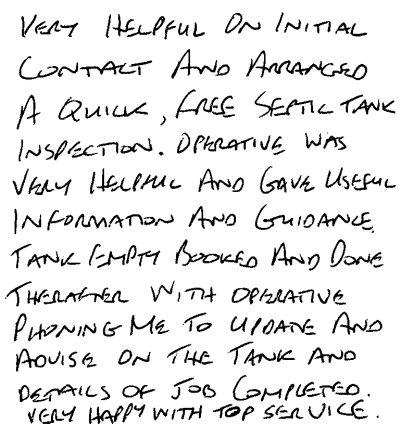 VERY HELPFUL ON INITIAL
CONTACT AND ARRANGED
A QUICK, FREE SEPTIC TANK
INSPECTION. OPERATIVE WAS
VERY HELPFUL AND GAVE USEFUL
INFORMATION AND GUIDANCE.
TANK EMPTY BOOKED AND DONE
THERAFTER WITH OPERATIVE
PHONING ME TO UPDATE AND
ADVISE ON THE TANK AND
DETAILS OF JOB COMPLETED.
VERY HAPPY WITH TOP SERVICE.